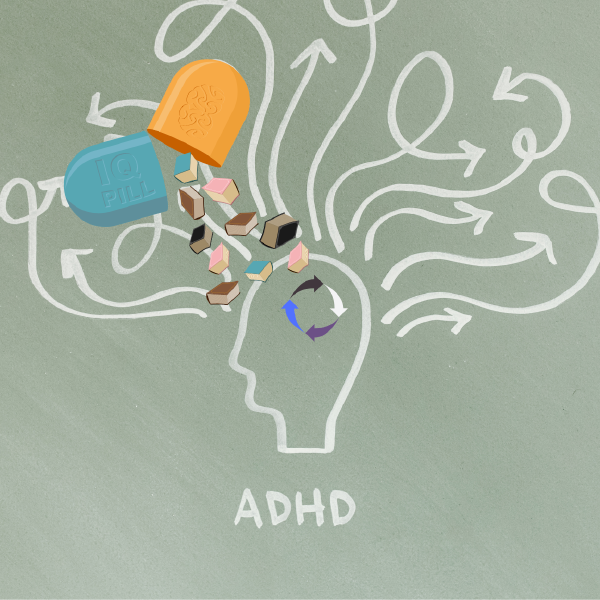 IQ
PILL
ADHD